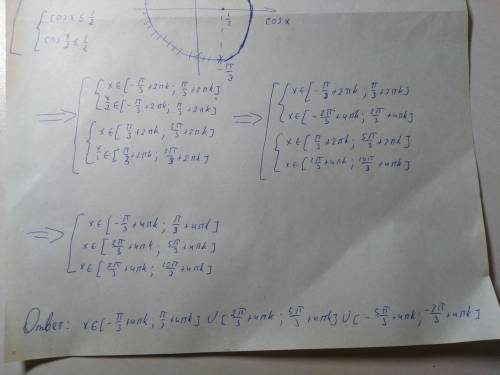 cos x ≤ 1/2
cos x/2 ≤ 1/2
1/2
cos x
-π/3
⇒ [ { x ∈ [-π/3 + 2πk ; π/3 + 2πk]
x/2 ∈ [-π/3 + 2πk ; π/3 + 2πk]
{ x ∈ [π/3 + 2πk ; 5π/3 + 2πk]
x/2 ∈ [π/3 + 2πk ; 5π/3 + 2πk]
⇒ [ { x ∈ [-π/3 + 2πk ; π/3 + 2πk]
x ∈ [-2π/3 + 4πk ; 2π/3 + 4πk]
{ x ∈ [π/3 + 2πk ; 5π/3 + 2πk]
x ∈ [2π/3 + 4πk ; 10π/3 + 4πk]
⇒ [ x ∈ [-π/3 + 4πk ; π/3 + 4πk]
x ∈ [2π/3 + 4πk ; 5π/3 + 4πk]
x ∈ [7π/3 + 4πk ; 10π/3 + 4πk]
Ответ: x ∈ [-π/3 + 4πk ; π/3 + 4πk] ∪ [2π/3 + 4πk ; 5π/3 + 4πk] ∪ [-5π/3 + 4πk ; -2π/3 + 4πk]